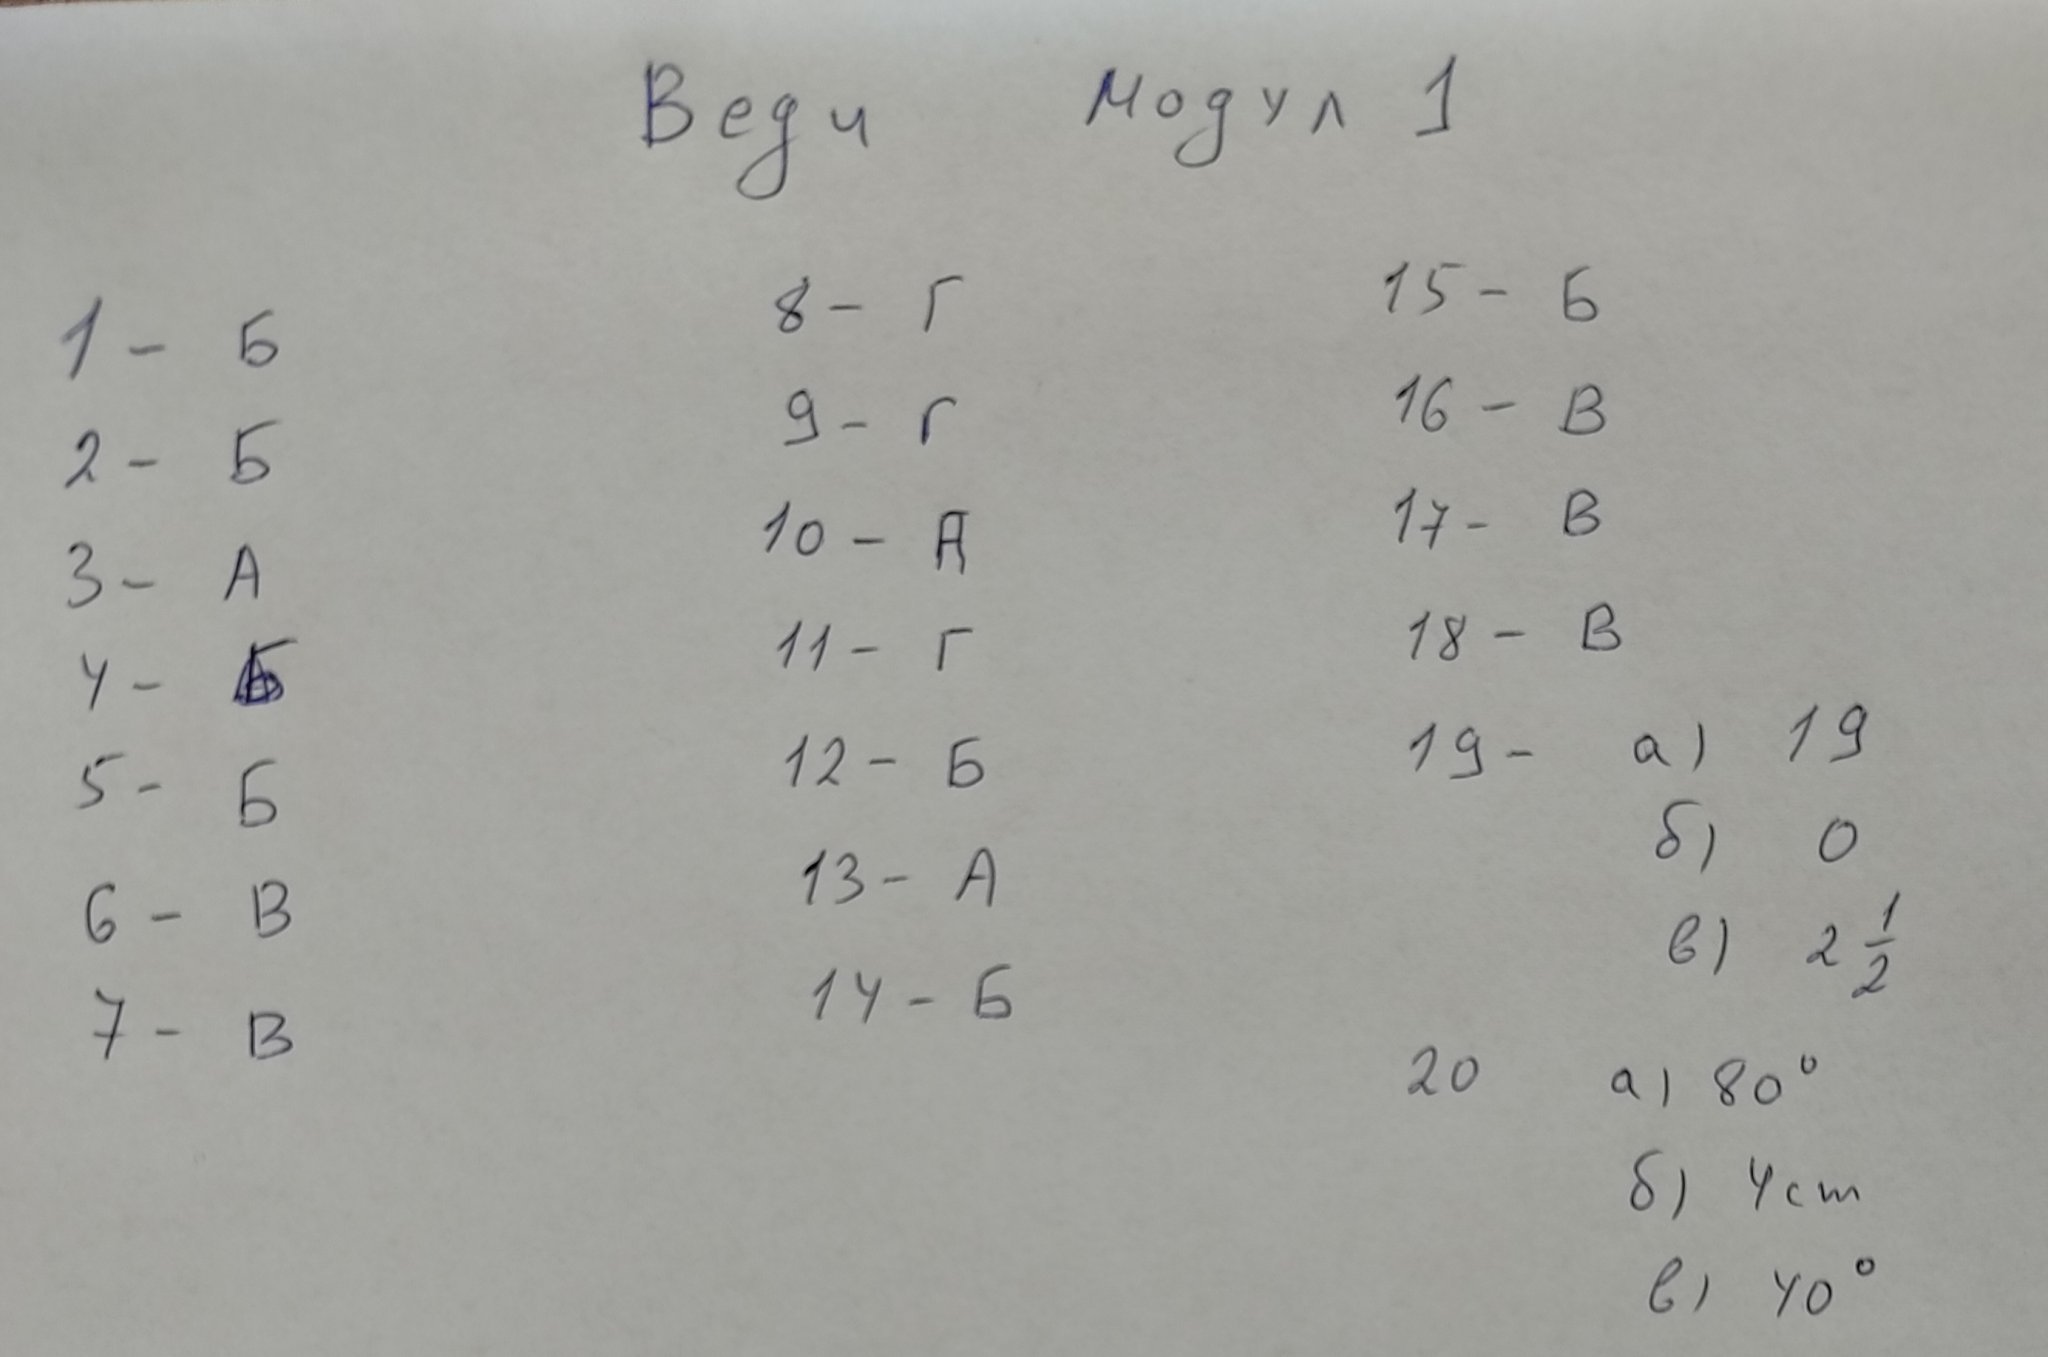 Веди Модул 1
1 - Б
2 - Б
3 - А
4 - Б
5 - Б
6 - В
7 - В
8 - Г
9 - Г
10 - А
11 - Г
12 - Б
13 - А
14 - Б
15 - Б
16 - В
17 - В
18 - В
19 - а) 19
б) 0
в) 2 1/2
20 а) 80°
б) 4cm
в) 40°